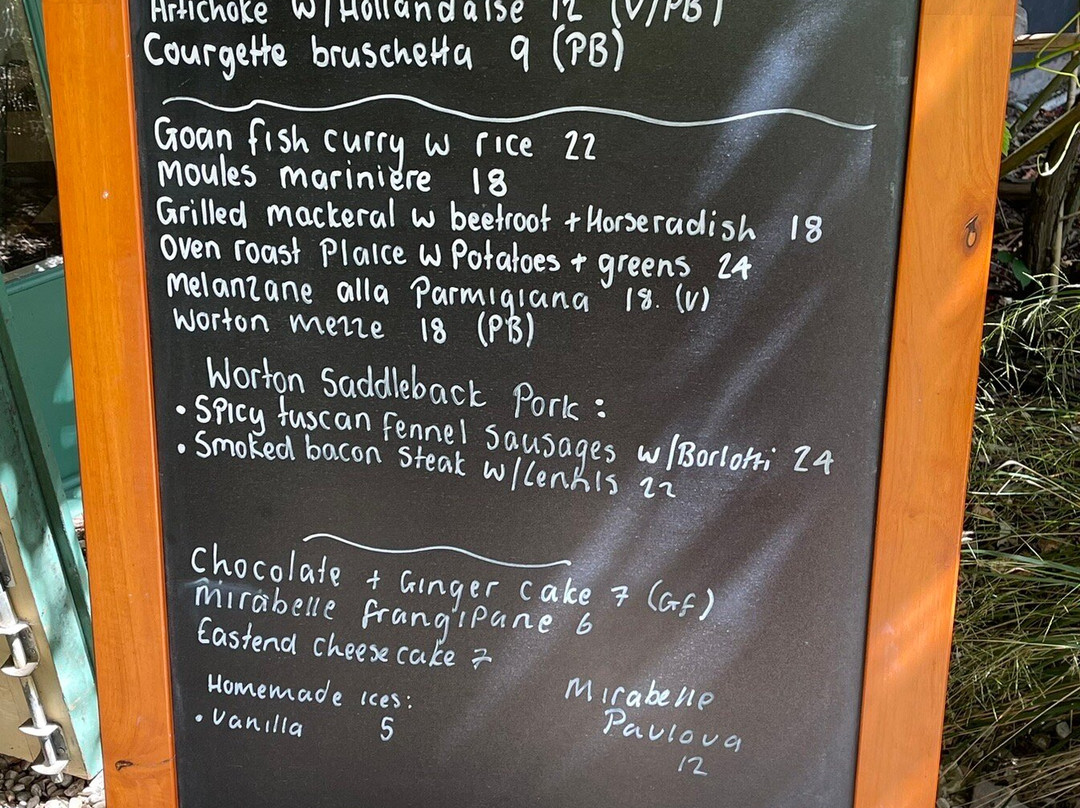 Artichoke w/Hollandaise 12 (V/PB)
Courgette bruschetta 9 (PB)
Goan fish curry w rice 22
Moules mariniere 18
Grilled mackeral w beetroot + Horseradish 18
Oven roast Plaice w Potatoes + greens 24
Melanzane alla Parmigiana 18. (v)
Worton mezze 18 (PB)
Worton Saddleback Pork:
• Spicy tuscan fennel sausages w/Borlotti 24
• Smoked bacon steak w/Lentils 22
Chocolate + Ginger cake 7 (GF)
Mirabelle frangipane 6
Eastend cheesecake 7
Homemade ices:
• Vanilla 5
Mirabelle
Pavlova
12